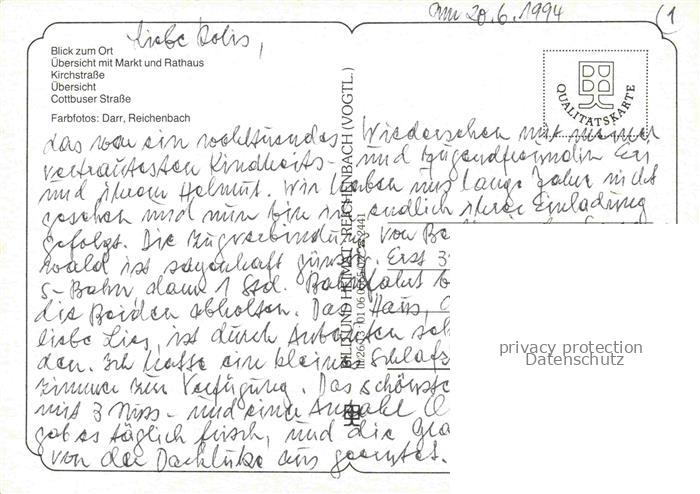 am 20.6.1994 (1
Liebe Dolis,
Blick zum Ort
Übersicht mit Markt und Rathaus
Kirchstraße
Übersicht
Cottbuser Straße
Farbfotos: Darr, Reichenbach
QUALITÄTSKARTE
BILD UND HEIMAT REICHENBACH (VOGTL.)
das war ein wohltuendes Wiedersehen mit meiner
vertrautesten Kindheits- und Jugendfreundin
und ihrem Helmut. Wir haben uns lange Jahre nicht
gesehen und nun bin ich endlich ihrer Einladung
gefolgt. Die Zugverbindung von
wald ist sagenhaft günstig. Erst
S-Bahn dann 1 Std. Bahnfahrt
die Beiden abholten. Das Haus,
liebe ist durch Anbauten
den. Ich hatte ein kleines Schlafz
zimmer zur Verfügung. Das schönste
mit 3 Nuss- und einer Anzahl
gab es täglich frisch, und die
von der Dachluke aus geerntet.
privacy protection
Datenschutz